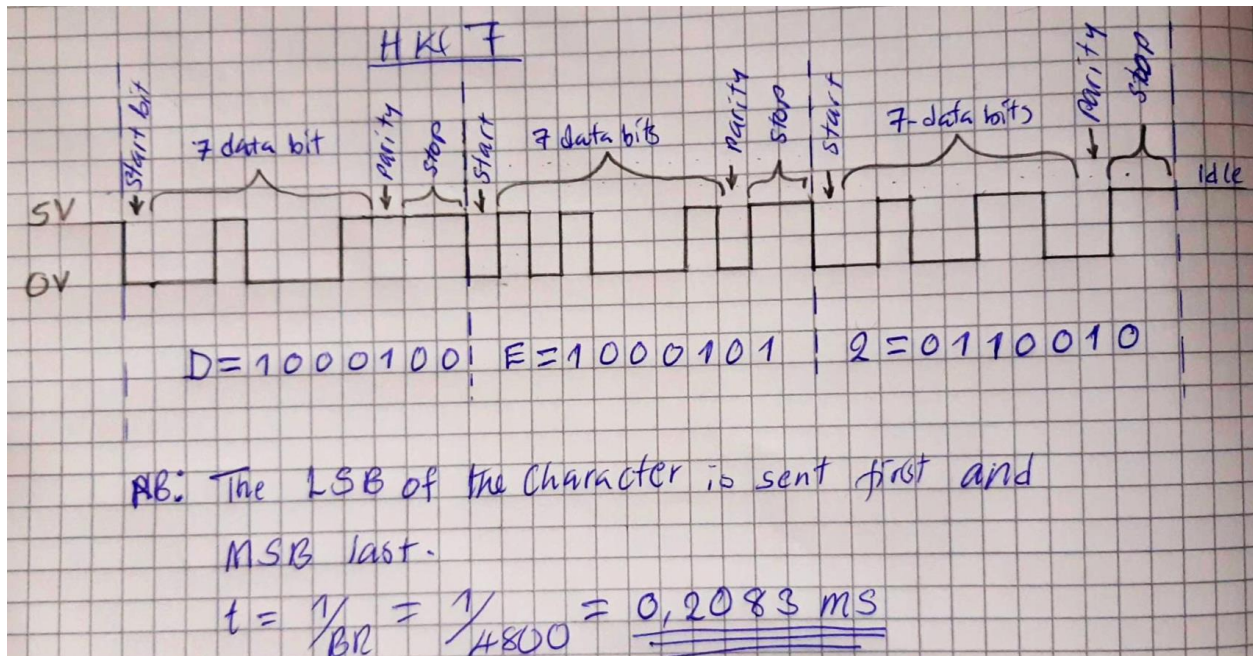 HKC 7
Start bit
7 data bit
parity
stop
start
7 data bits
parity
stop
start
7-data bits
parity
stop
idle
5V
0V
D=1000100
E=1000101
2=0110010
NB: The LSB of the Character is sent first and
MSB last.
t = 1/BR = 1/4800 = 0,2083 ms